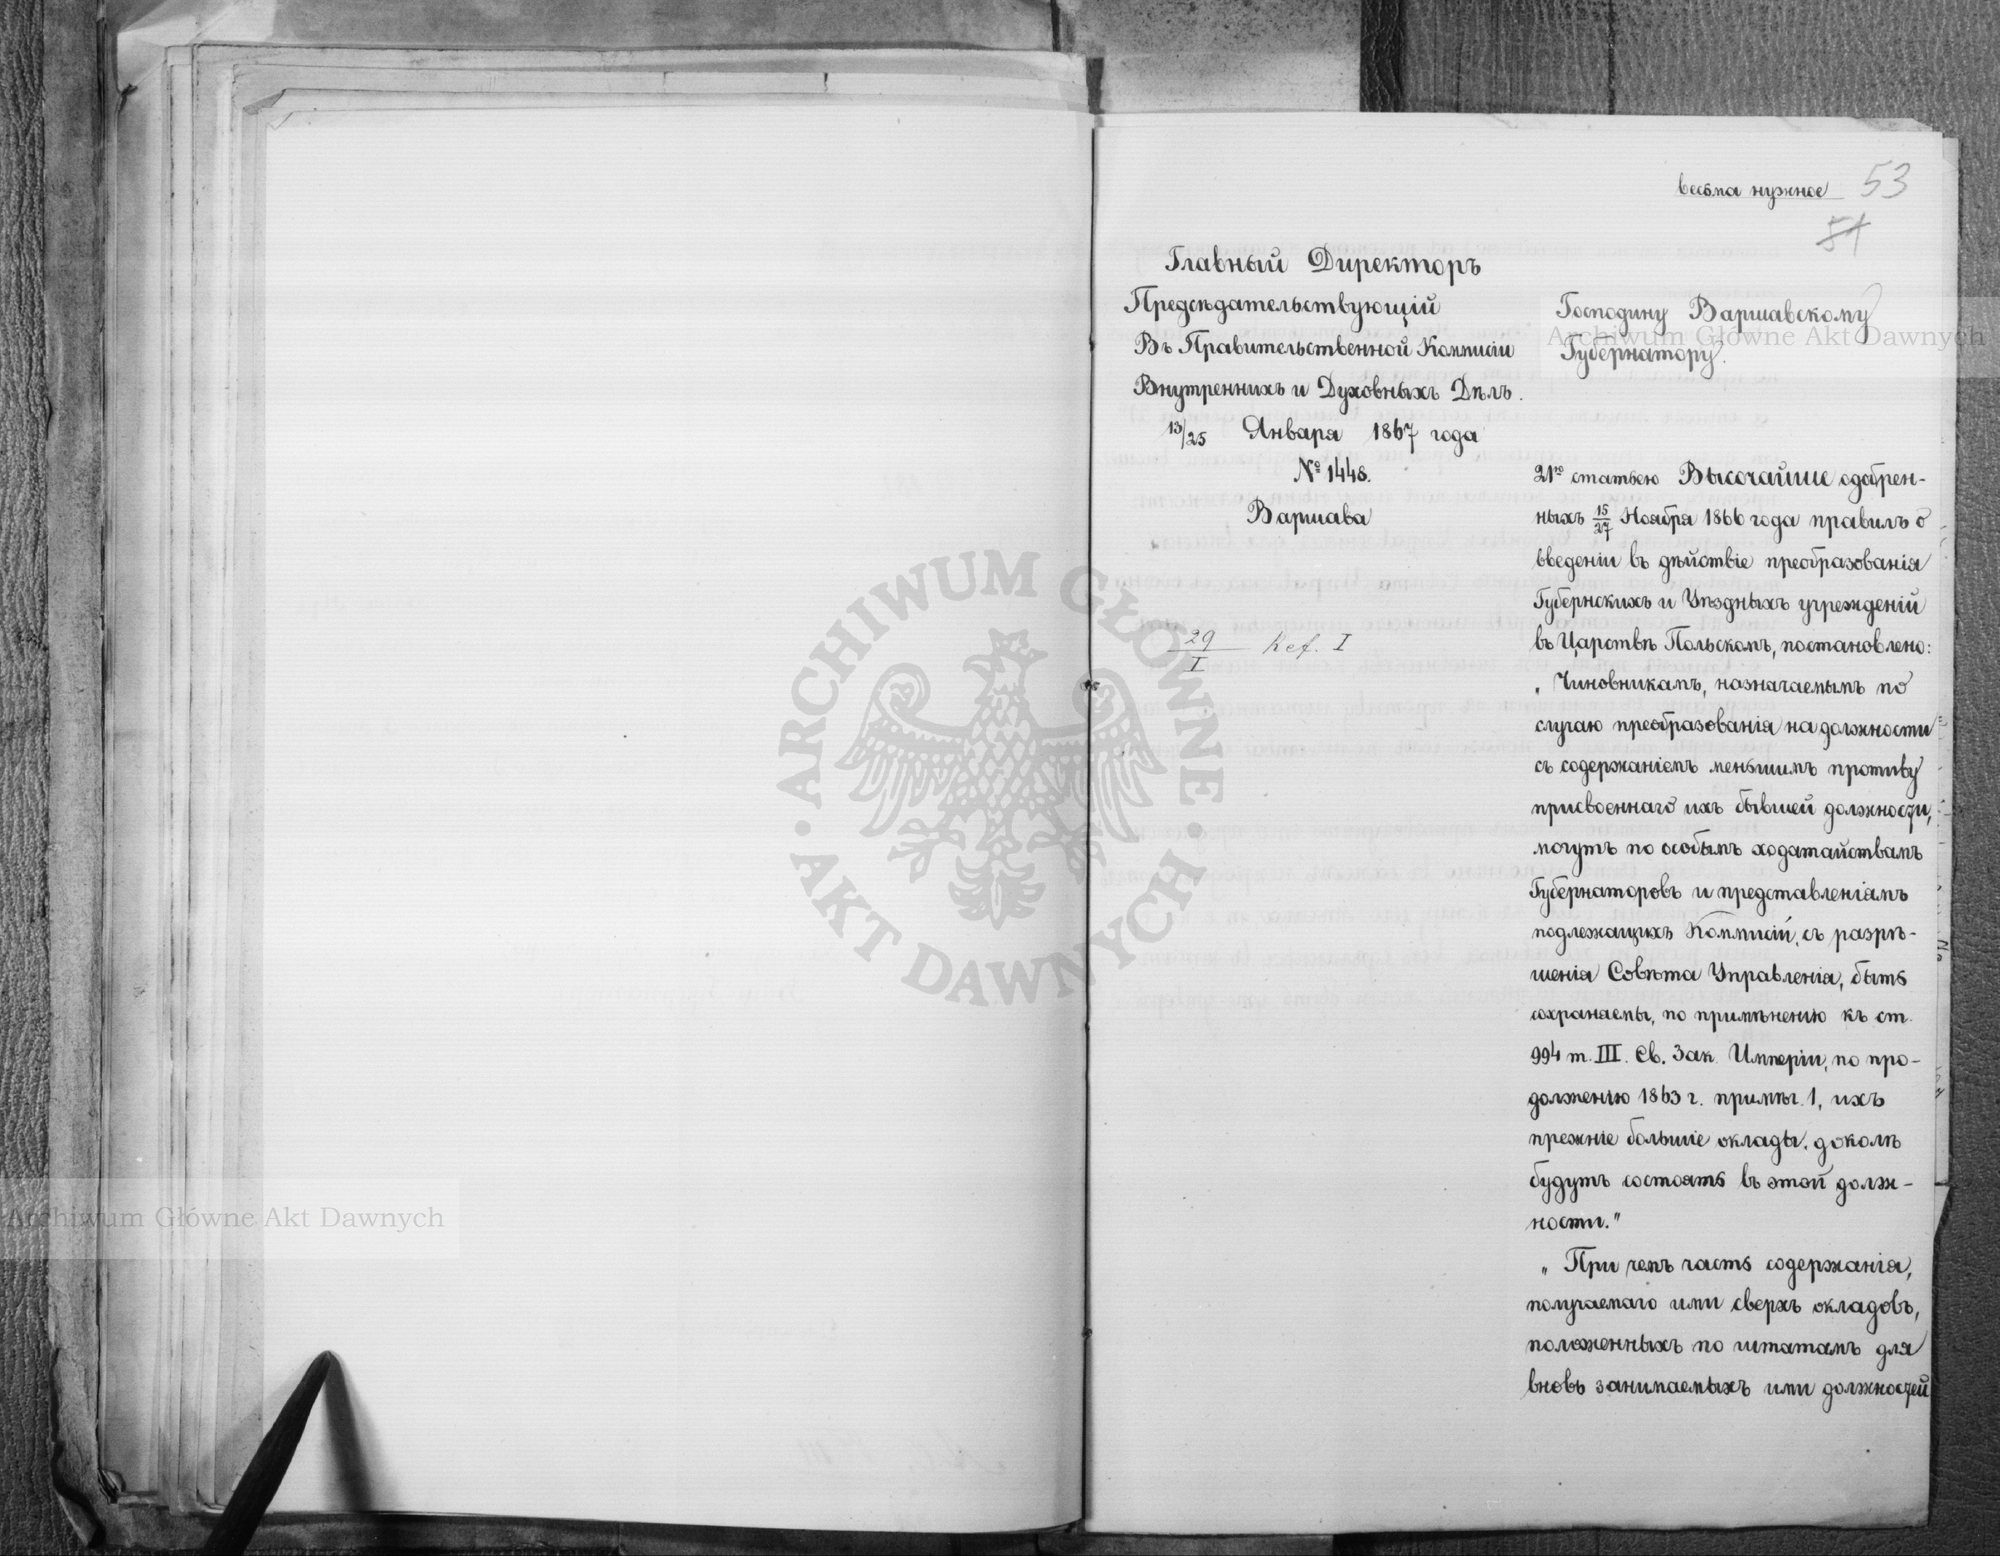 весьма нужное 53
51
Главный Директоръ
Предсѣдательствующій
Въ Правительственной Коммисіи
Внутреннихъ и Духовныхъ Дѣлъ.
13/25 Января 1867 года
№ 1448.
Варшава
29/I Ref. I
Господину Варшавскому
Губернатору.
21ю статьею Высочайше одобрен-
ныхъ 15/27 Ноября 1866 года правилъ о
введеніи въ дѣйствіе преобразованія
Губернскихъ и Уѣздныхъ учрежденій
въ Царствѣ Польскомъ, постановлено:
„Чиновникамъ, назначаемымъ по
случаю преобразованія на должности
съ содержаніемъ меньшимъ противу
присвоеннаго ихъ бывшей должности,
могутъ по особымъ ходатайствамъ
Губернаторовъ и представленіямъ
подлежащихъ Коммисій, съ разрѣ-
шенія Совѣта Управленія, быть
сохраняемы, по примѣненію къ ст.
994 т. III. Св. Зак. Имперіи, по про-
долженію 1863 г. примѣч. 1, ихъ
прежніе большіе оклады, доколѣ
будутъ состоять въ этой долж-
ности."
„При чемъ часть содержанія,
получаемаго ими сверхъ окладовъ,
положенныхъ по штатамъ для
вновь занимаемыхъ ими должностей
ARCHIWUM GŁÓWNE AKT DAWNYCH
Archiwum Główne Akt Dawnych
Archiwum Główne Akt Dawnych